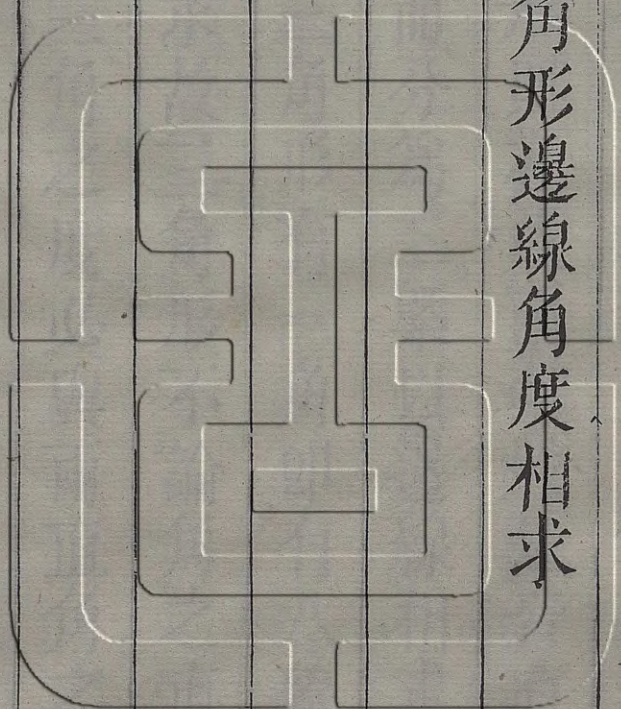 角形邊線角度相求